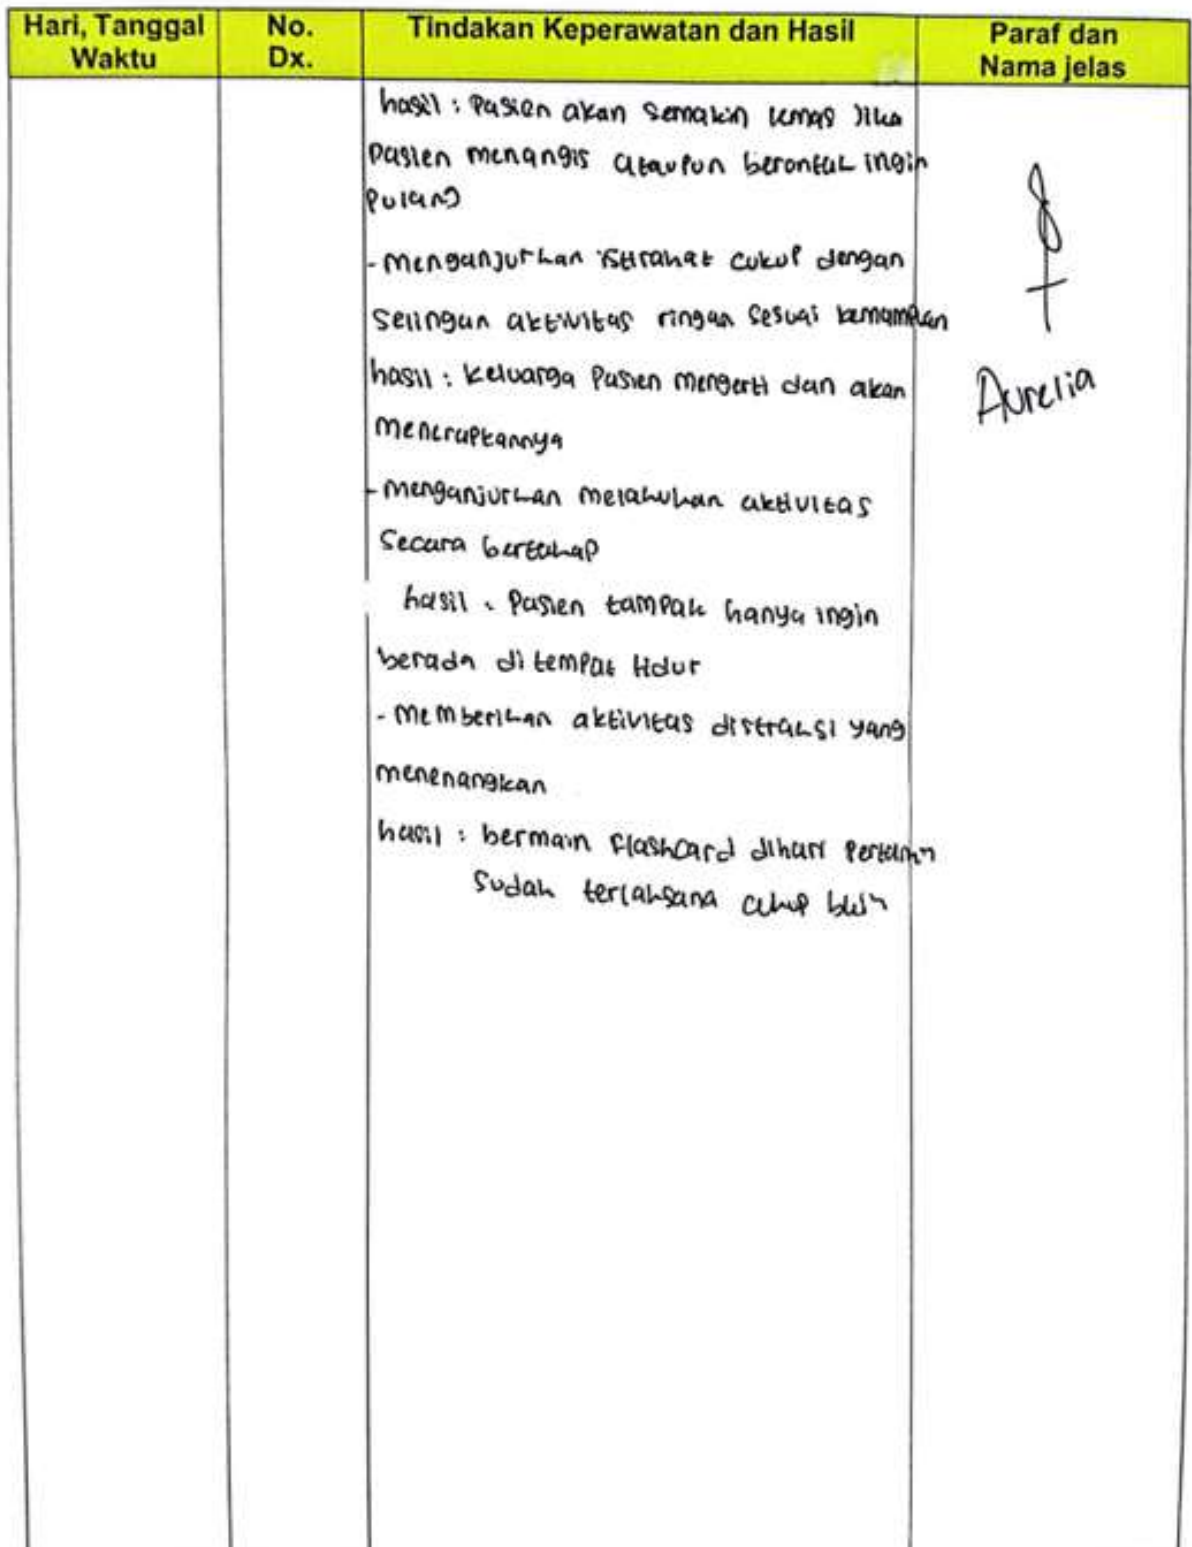 Hari, Tanggal Waktu
No. Dx.
Tindakan Keperawatan dan Hasil
Paraf dan Nama jelas
hasil : Pasien akan semakin lemas jika
pasien menangis ataupun berontak ingin
pulang
- menganjurkan istirahat cukup dengan
selingan aktivitas ringan sesuai kemampuan
hasil : keluarga pasien mengerti dan akan
menerapkannya
- menganjurkan melakukan aktivitas
secara bertahap
hasil : Pasien tampak hanya ingin
berada di tempat tidur
- memberikan aktivitas distraksi yang
menenangkan
hasil : bermain flashcard dihari pertama
sudah terlaksana cukup baik
Aurelia